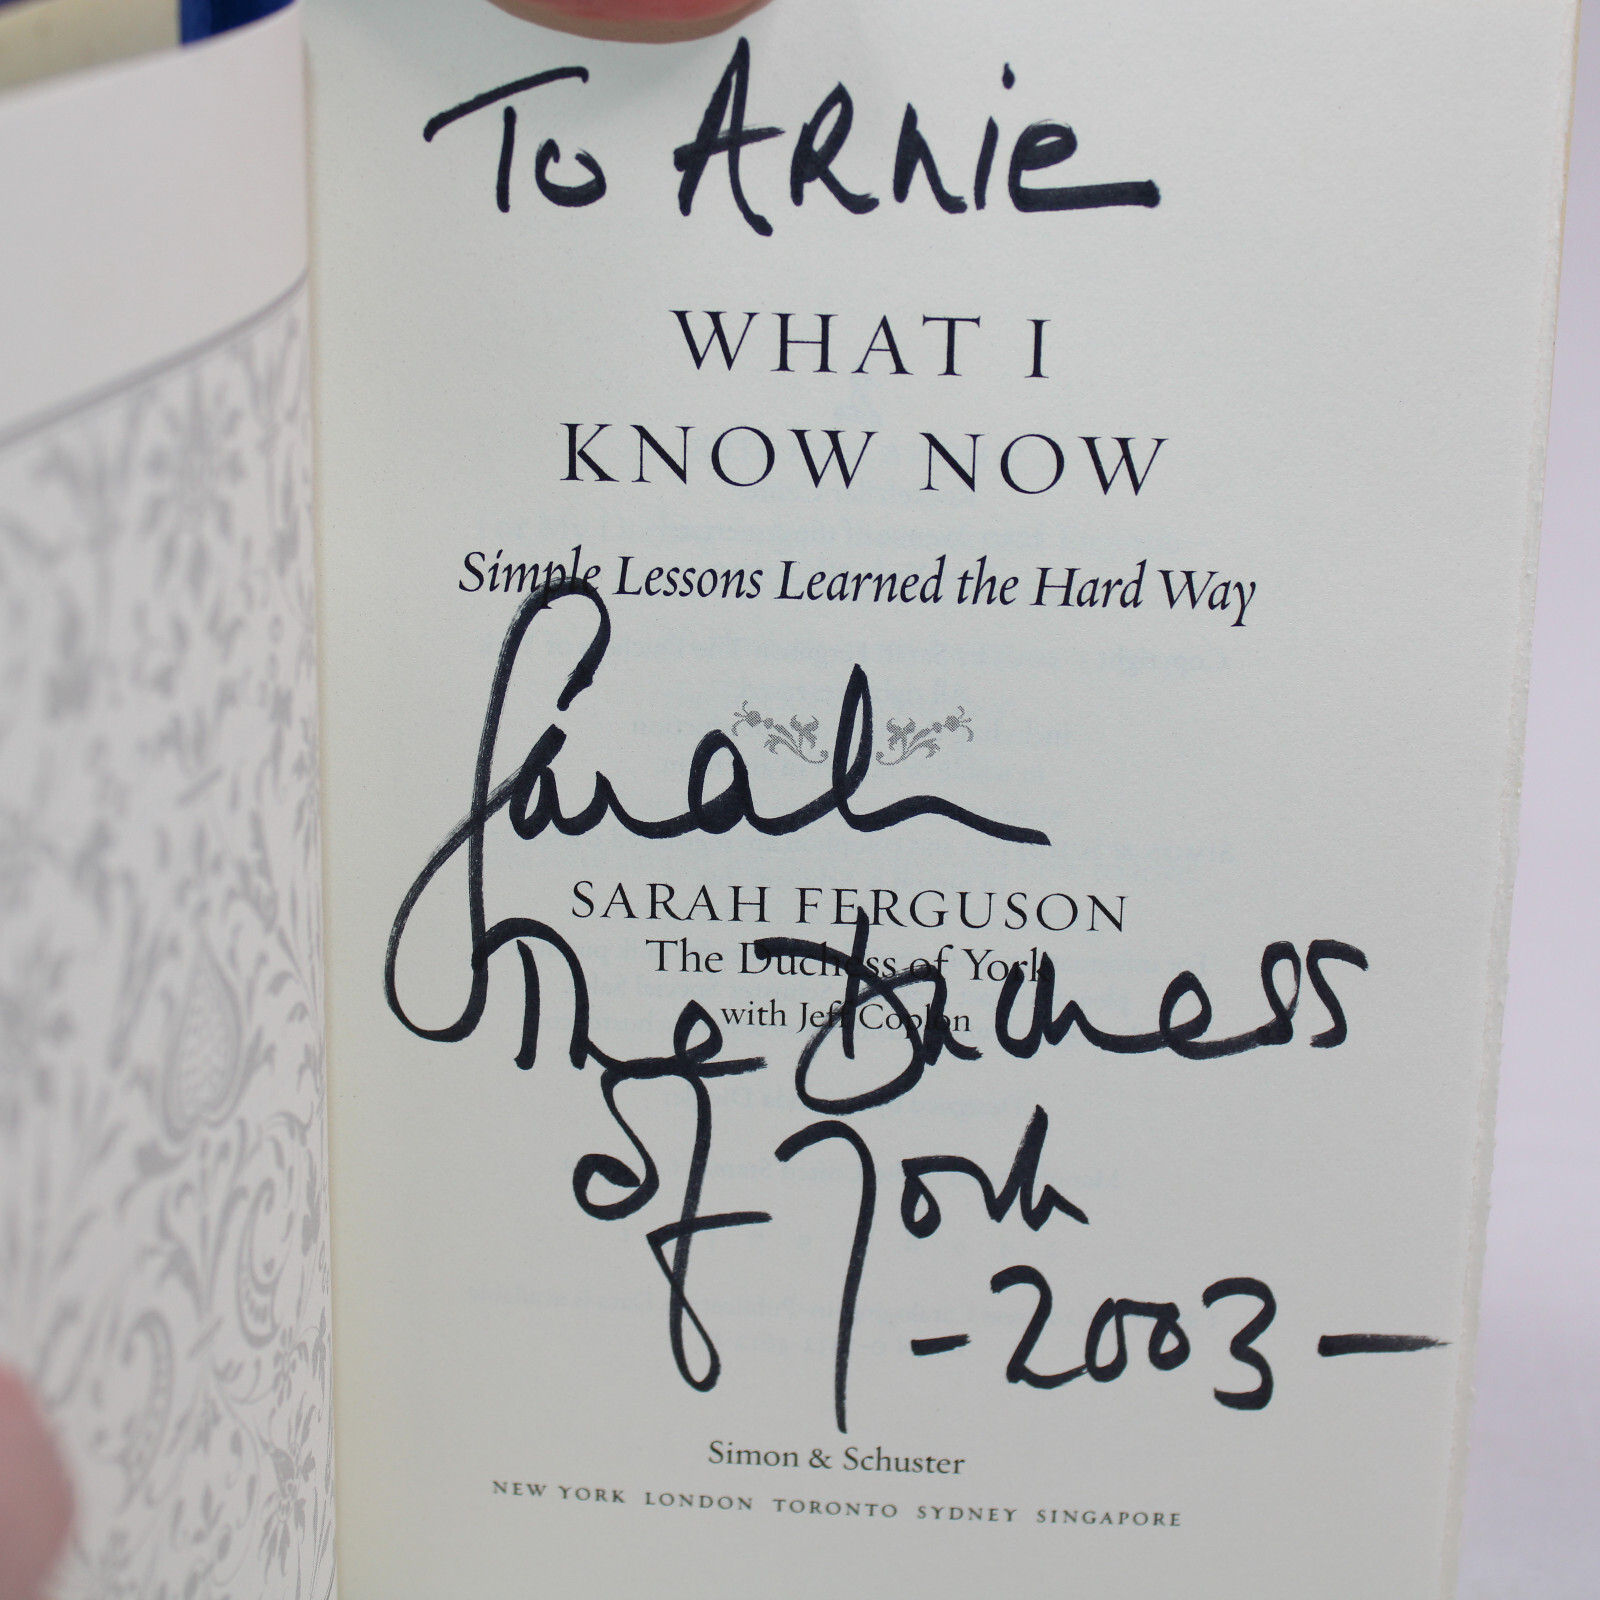 To ARNIE
WHAT I
KNOW NOW
Simple Lessons Learned the Hard Way
Sarah
SARAH FERGUSON
The Duchess of York
with Jeff Coplon
The Duchess
of York
- 2003 -
Simon & Schuster
NEW YORK LONDON TORONTO SYDNEY SINGAPORE